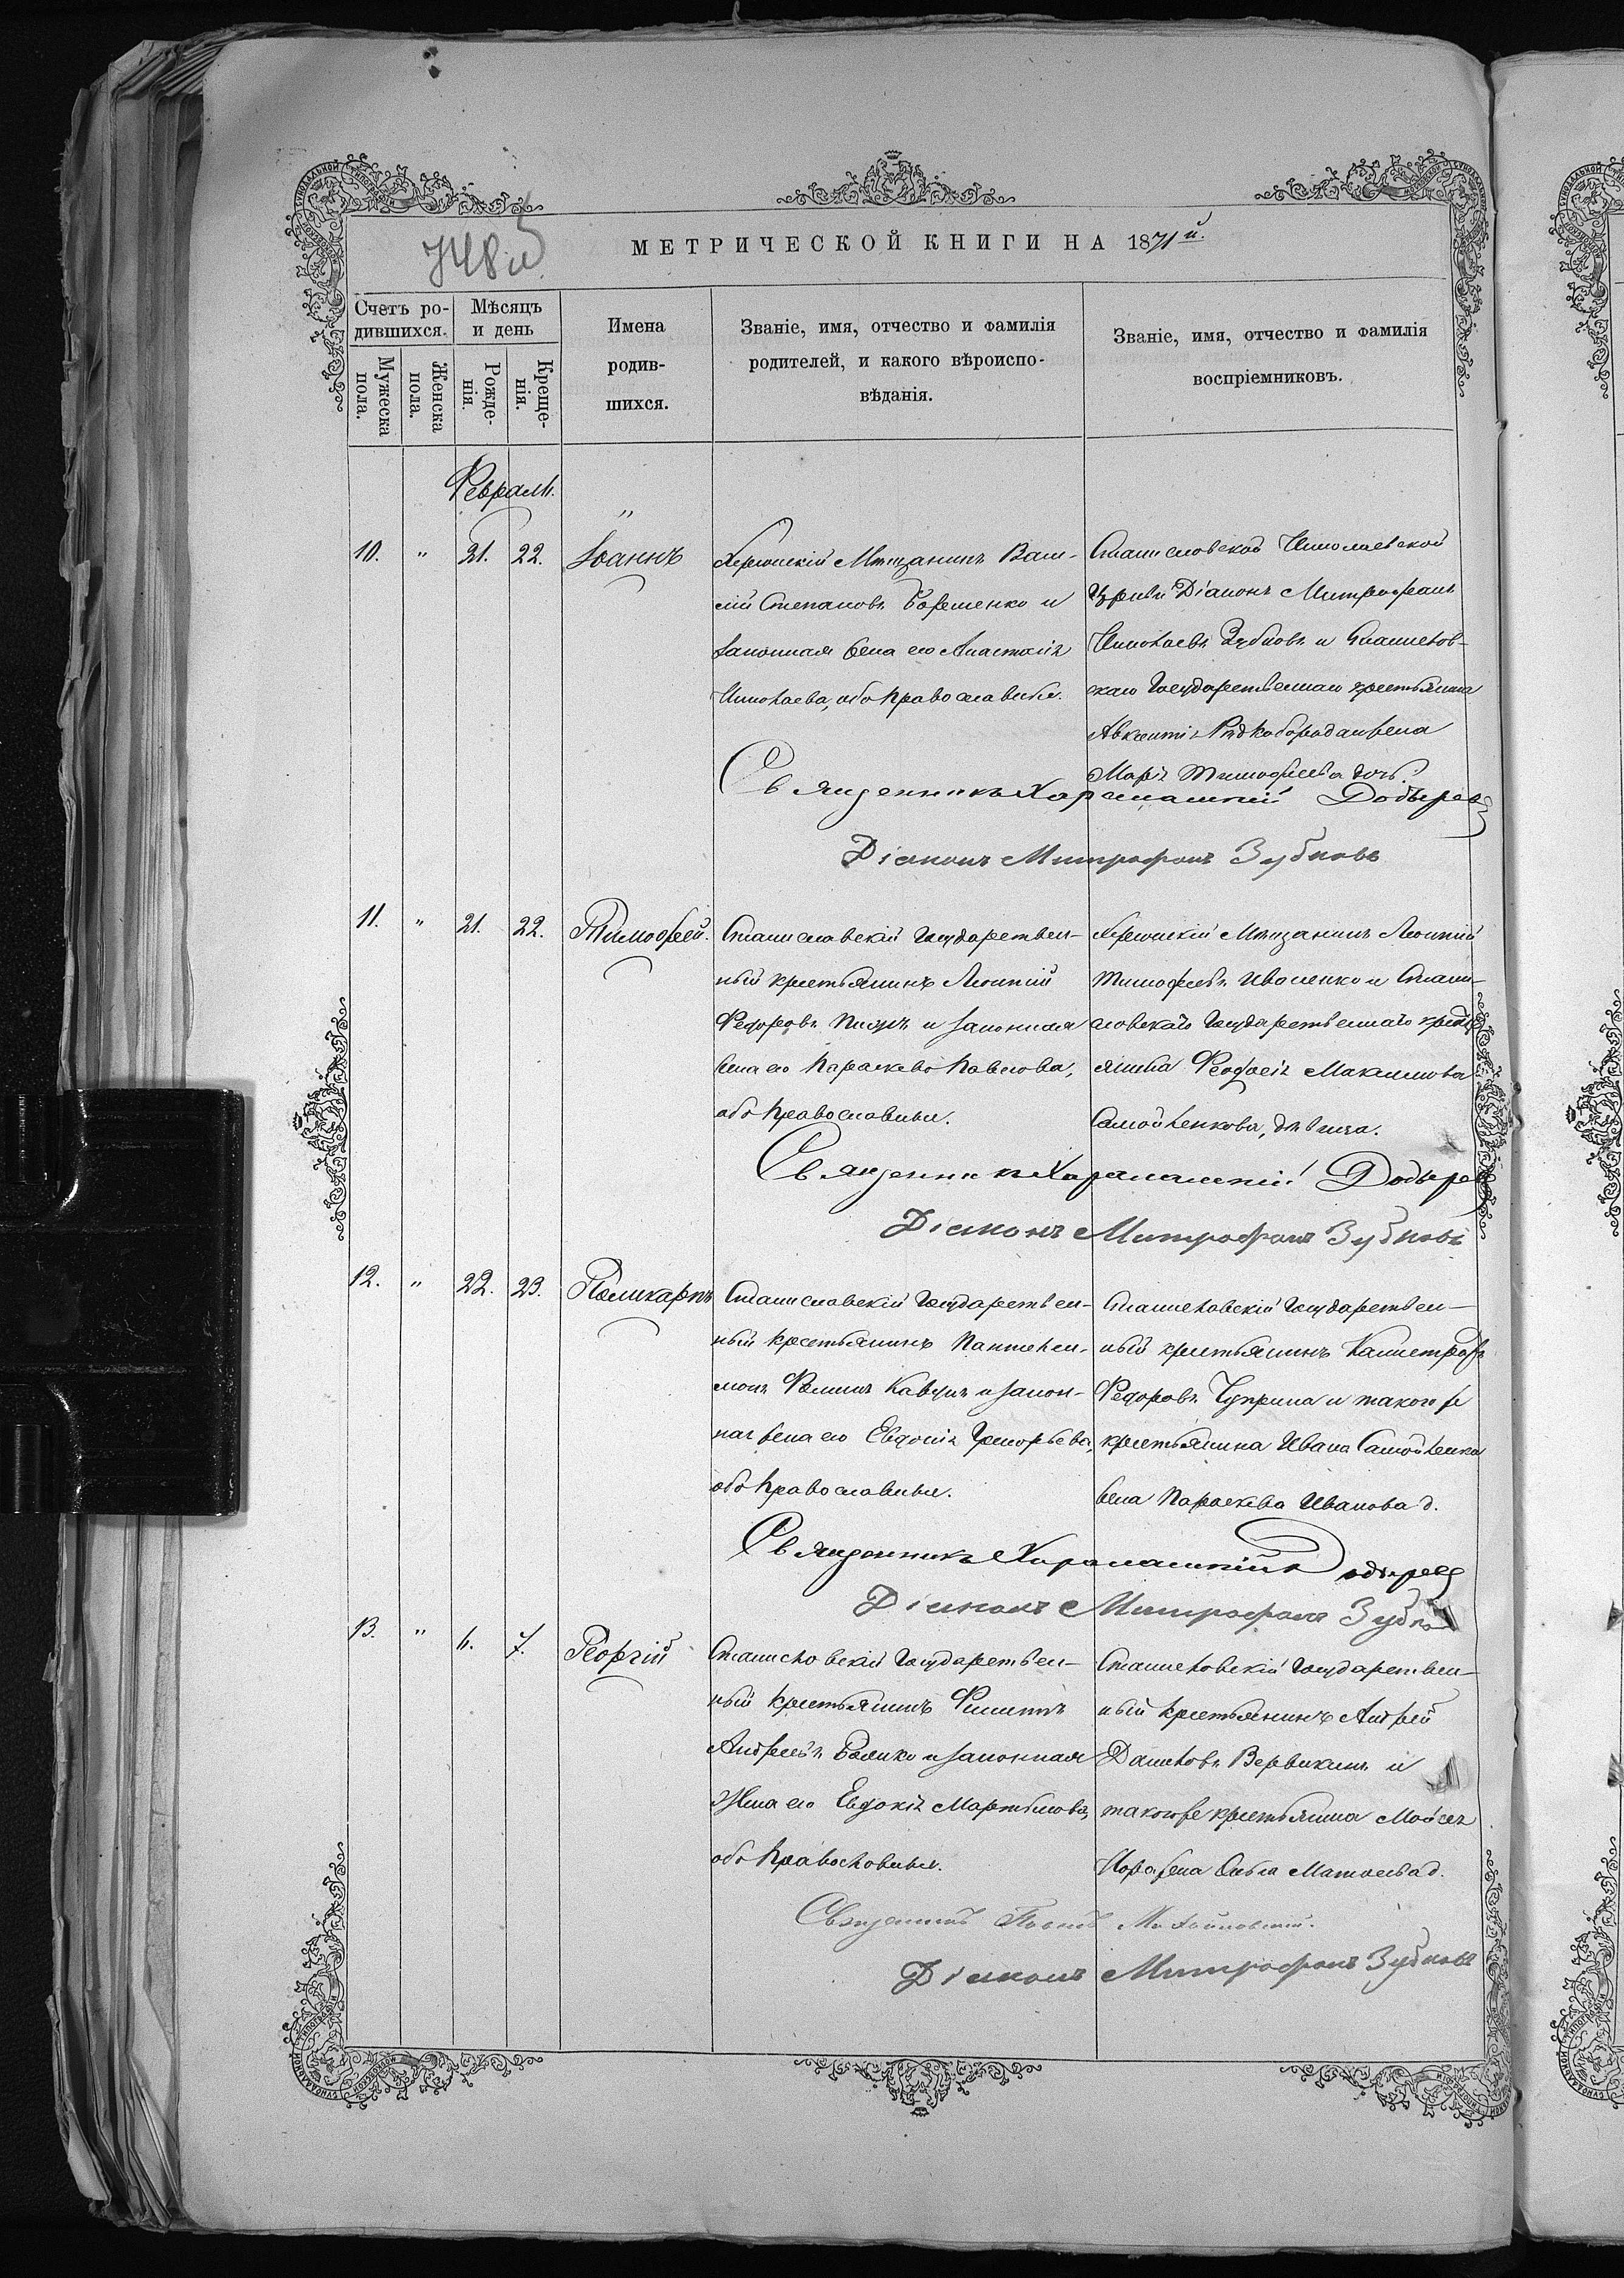 748 й
МЕТРИЧЕСКОЙ КНИГИ НА 1871 й.
Счетъ ро-
дившихся.
Мѣсяцъ
и день
Мужеска
пола.
Женска
пола.
Рожде-
нія.
Креще-
нія.
Имена
родив-
шихся.
Званіе, имя, отчество и фамилія
родителей, и какого вѣроиспо-
вѣданія.
Званіе, имя, отчество и фамилія
воспріемниковъ.
Февраль.
"
10. " 21. 22. Іоаннъ
Херсонскій Мѣщанинъ Васи-
лій Степановъ и
законная жена его Анастасія
Николаева, оба православные.
Станиславской Николаевской
Церкви Діаконъ Митрофанъ
Николаевъ Зубковъ и Станислав-
скаго Государственнаго крестьянина
Авксентія Рѣдкобородаго жена
Марія Тимофеева дочь.
Священникъ Харалампій
Діаконъ Митрофанъ Зубковъ
11. " 21. 22. Тимофей.
Станиславскій Государствен-
ный крестьянинъ Леонтій
Федоровъ и законная
жена его Параскева Павлова,
оба православные.
Херсонскій Мѣщанинъ Леонтій
Тимофеевъ Иваненко и Стани-
славскаго Государственнаго кресть
янина Феодосія Максимова
Самойленкова, дѣвица.
Священникъ Харалампій
Діаконъ Митрофанъ Зубковъ
12. " 22. 23. Поликарпъ
Станиславскій Государствен-
ный крестьянинъ Пантелей-
монъ Фоминъ Кавунъ и закон-
ная жена его Евдокія Григорьева,
оба православные.
Станиславскій Государствен-
ный крестьянинъ Каллистратъ
Федоровъ Чуприна и такого же
крестьянина Ивана Самойленка
жена Параскева Иванова д.
Священникъ Харалампій
Діаконъ Митрофанъ Зубко
13. " 6. 7. Георгій
Станиславскій Государствен-
ный крестьянинъ Филиппъ
Андреевъ и законная
Жена его Евдокія Мартынова,
оба Православные.
Станиславскій Государствен-
ный крестьянинъ Андрей
Даниловъ Вервикинъ и
такого же крестьянина Мойсея
жена Ольга Матвеева д.
Священникъ
Діаконъ Митрофанъ Зубковъ